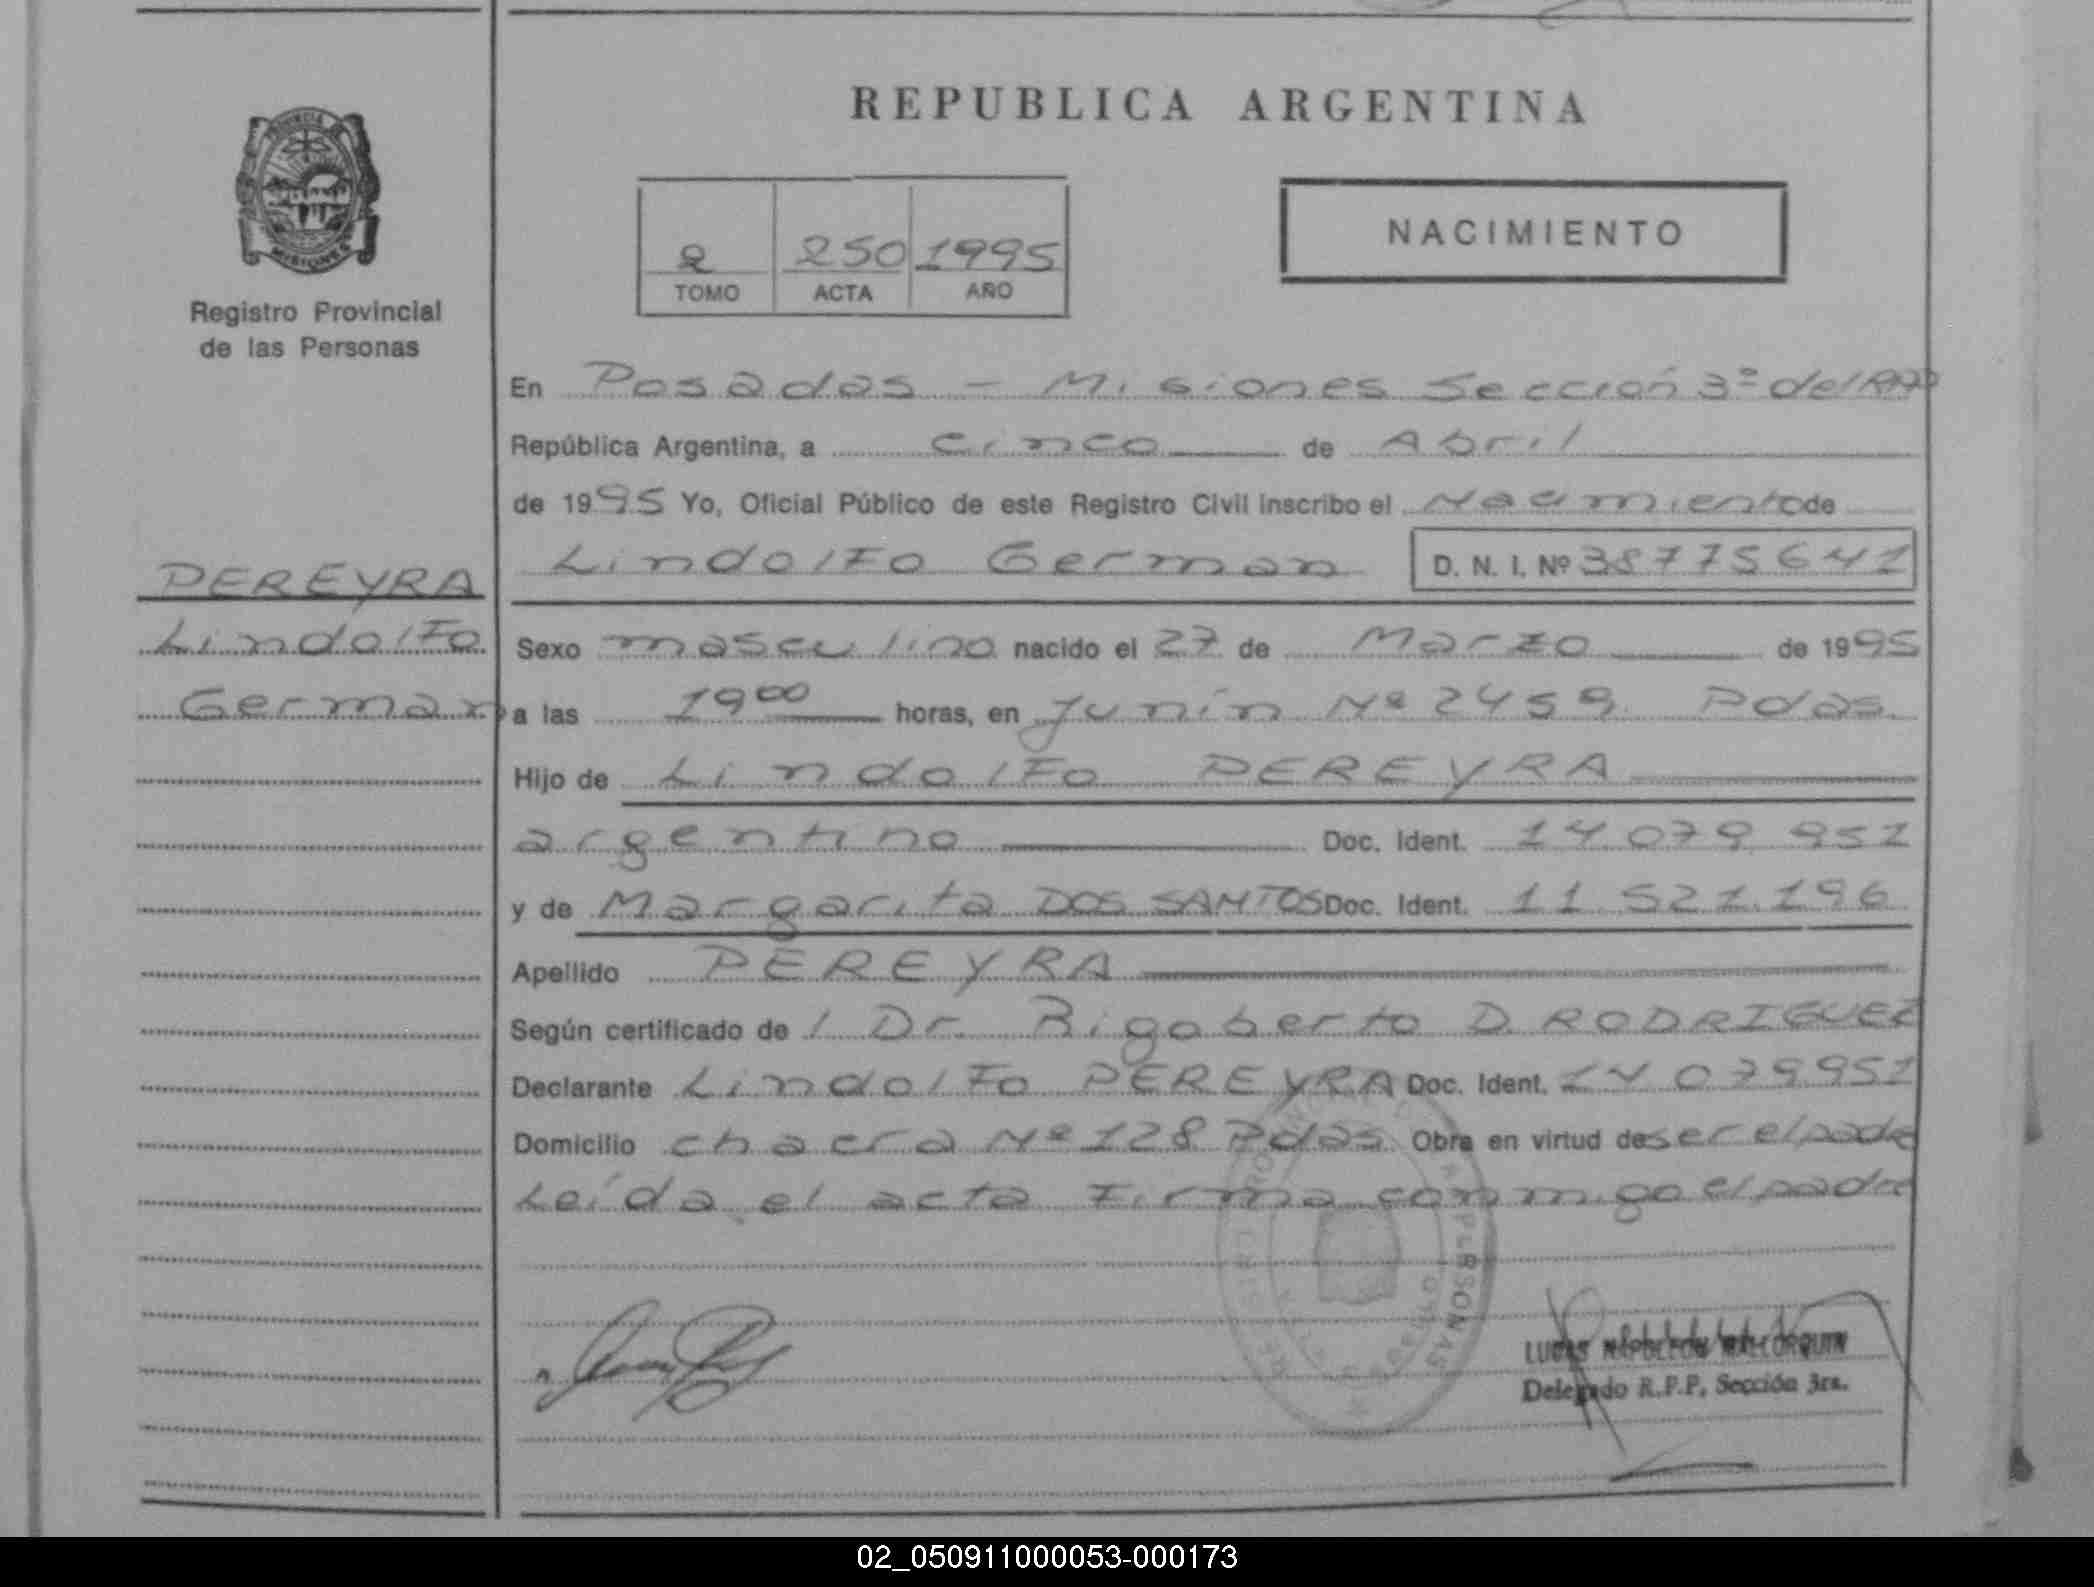 REPUBLICA ARGENTINA
PROVINCIA DE
MISIONES
Registro Provincial
de las Personas
2 250 1995
TOMO ACTA AÑO
NACIMIENTO
En Posadas - Misiones Sección 3º del RPP
República Argentina, a cinco de Abril
de 1995 Yo, Oficial Público de este Registro Civil inscribo el Nacimiento de
Lindolfo German D. N. I. Nº 38775641
PEREYRA
Lindolfo
German
Sexo masculino nacido el 27 de Marzo de 1995
a las 19 00 horas, en Junin Nº 2459 Pdas.
Hijo de Lindolfo PEREYRA
argentino Doc. Ident. 14.079.951
y de Margarita DOS SANTOS Doc. Ident. 11.521.196
Apellido PEREYRA
Según certificado de l Dr. Rigoberto D. RODRIGUEZ
Declarante Lindolfo PEREYRA Doc. Ident. 14.079951
Domicilio chacra Nº 128 Pdas. Obra en virtud de ser el padre
Leída el acta firma conmigo el padre
PERSONAS
LUCAS
Delegado R.P.P. Sección 3ra.
02_050911000053-000173